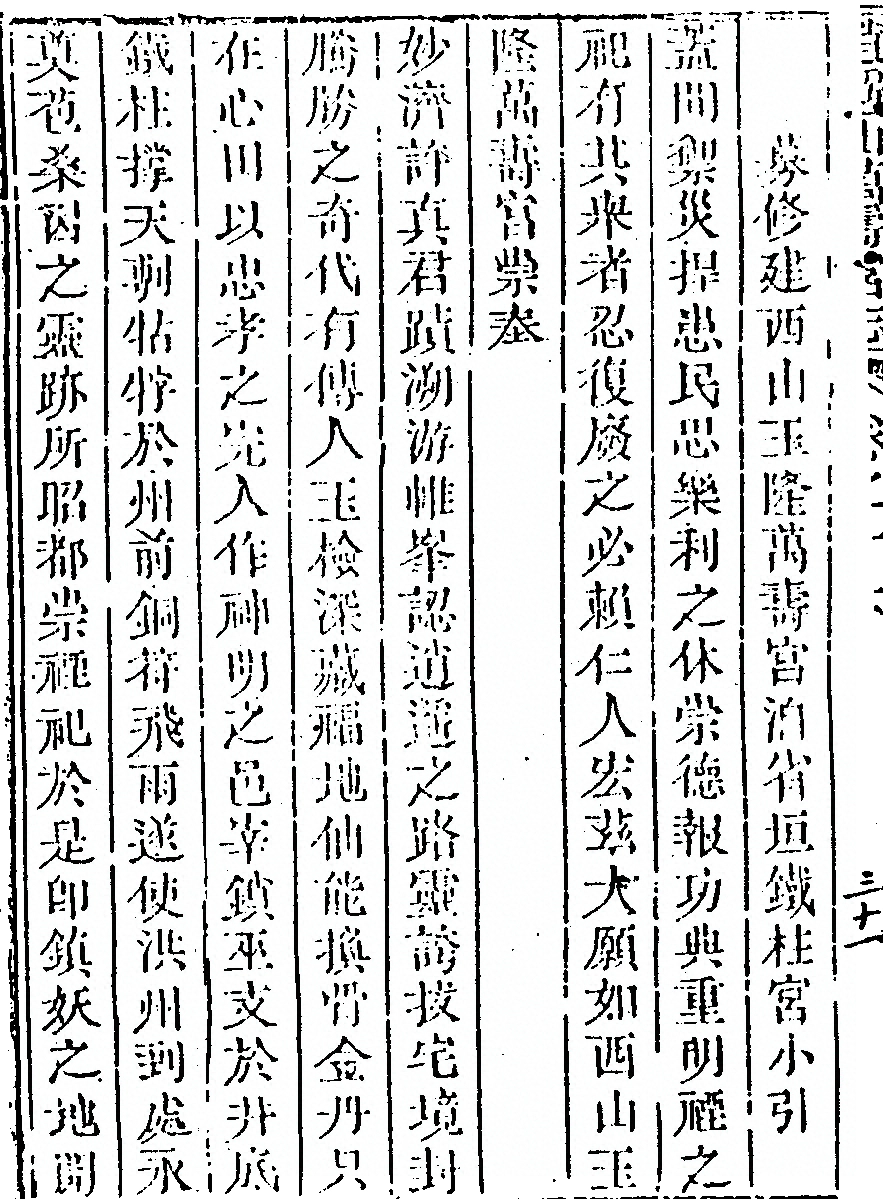 募修建西山玉隆萬壽宮洎省垣鐵柱宮小引
蓋聞禦災捍患民思樂利之休崇德報功典重明禋之
祀有其舉者忍復廢之必賴仁人宏茲大願如西山玉
隆萬壽宮崇奉
妙濟許真君蹟溯游帷峯認逍遙之路靈誇拔宅境封
勝之奇代有傳人玉檢深藏福地仙能換骨金丹只
在心田以忠孝之先人作神明之邑宰鎖巫支於井底
鐵柱撑天馴牯牸於州前銅符飛雨遂使洪州到處永
奠苞桑因之靈跡所昭都崇禋祀於是卽鎮妖之地開
三十一